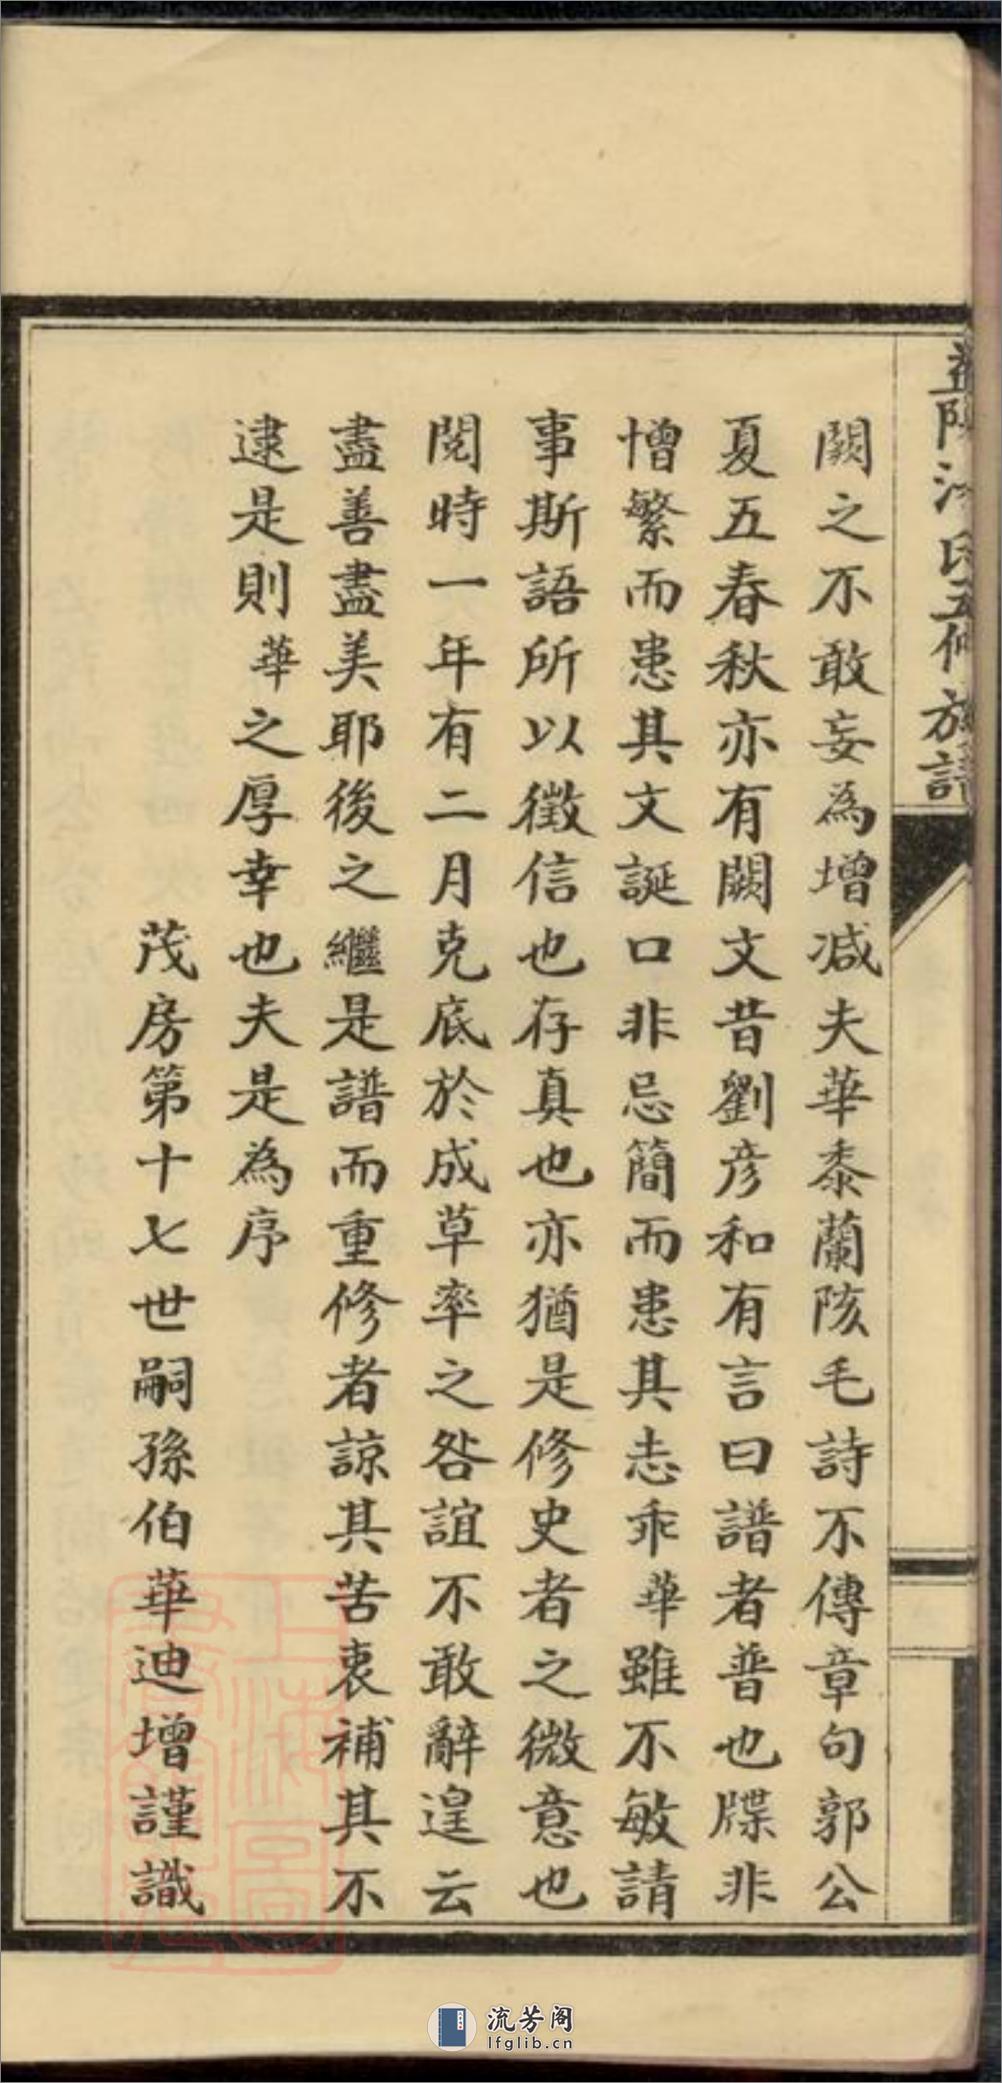 益陽汾氏五修族譜
闕之不敢妄為增減夫華黍蘭陔毛詩不傳章句郭公
夏五春秋亦有闕文昔劉彦和有言曰譜者普也牒非
憎繁而患其文誕口非忌簡而患其志乖華雖不敏請
事斯語所以徵信也存真也亦猶是修史者之微意也
閱時一年有二月克底於成草率之咎誼不敢辭遑云
盡善盡美耶後之繼是譜而重修者諒其苦衷補其不
逮是則華之厚幸也夫是為序
茂房第十七世嗣孫伯華迪增謹識
上海圖書館藏
流芳阁
lfglib.cn